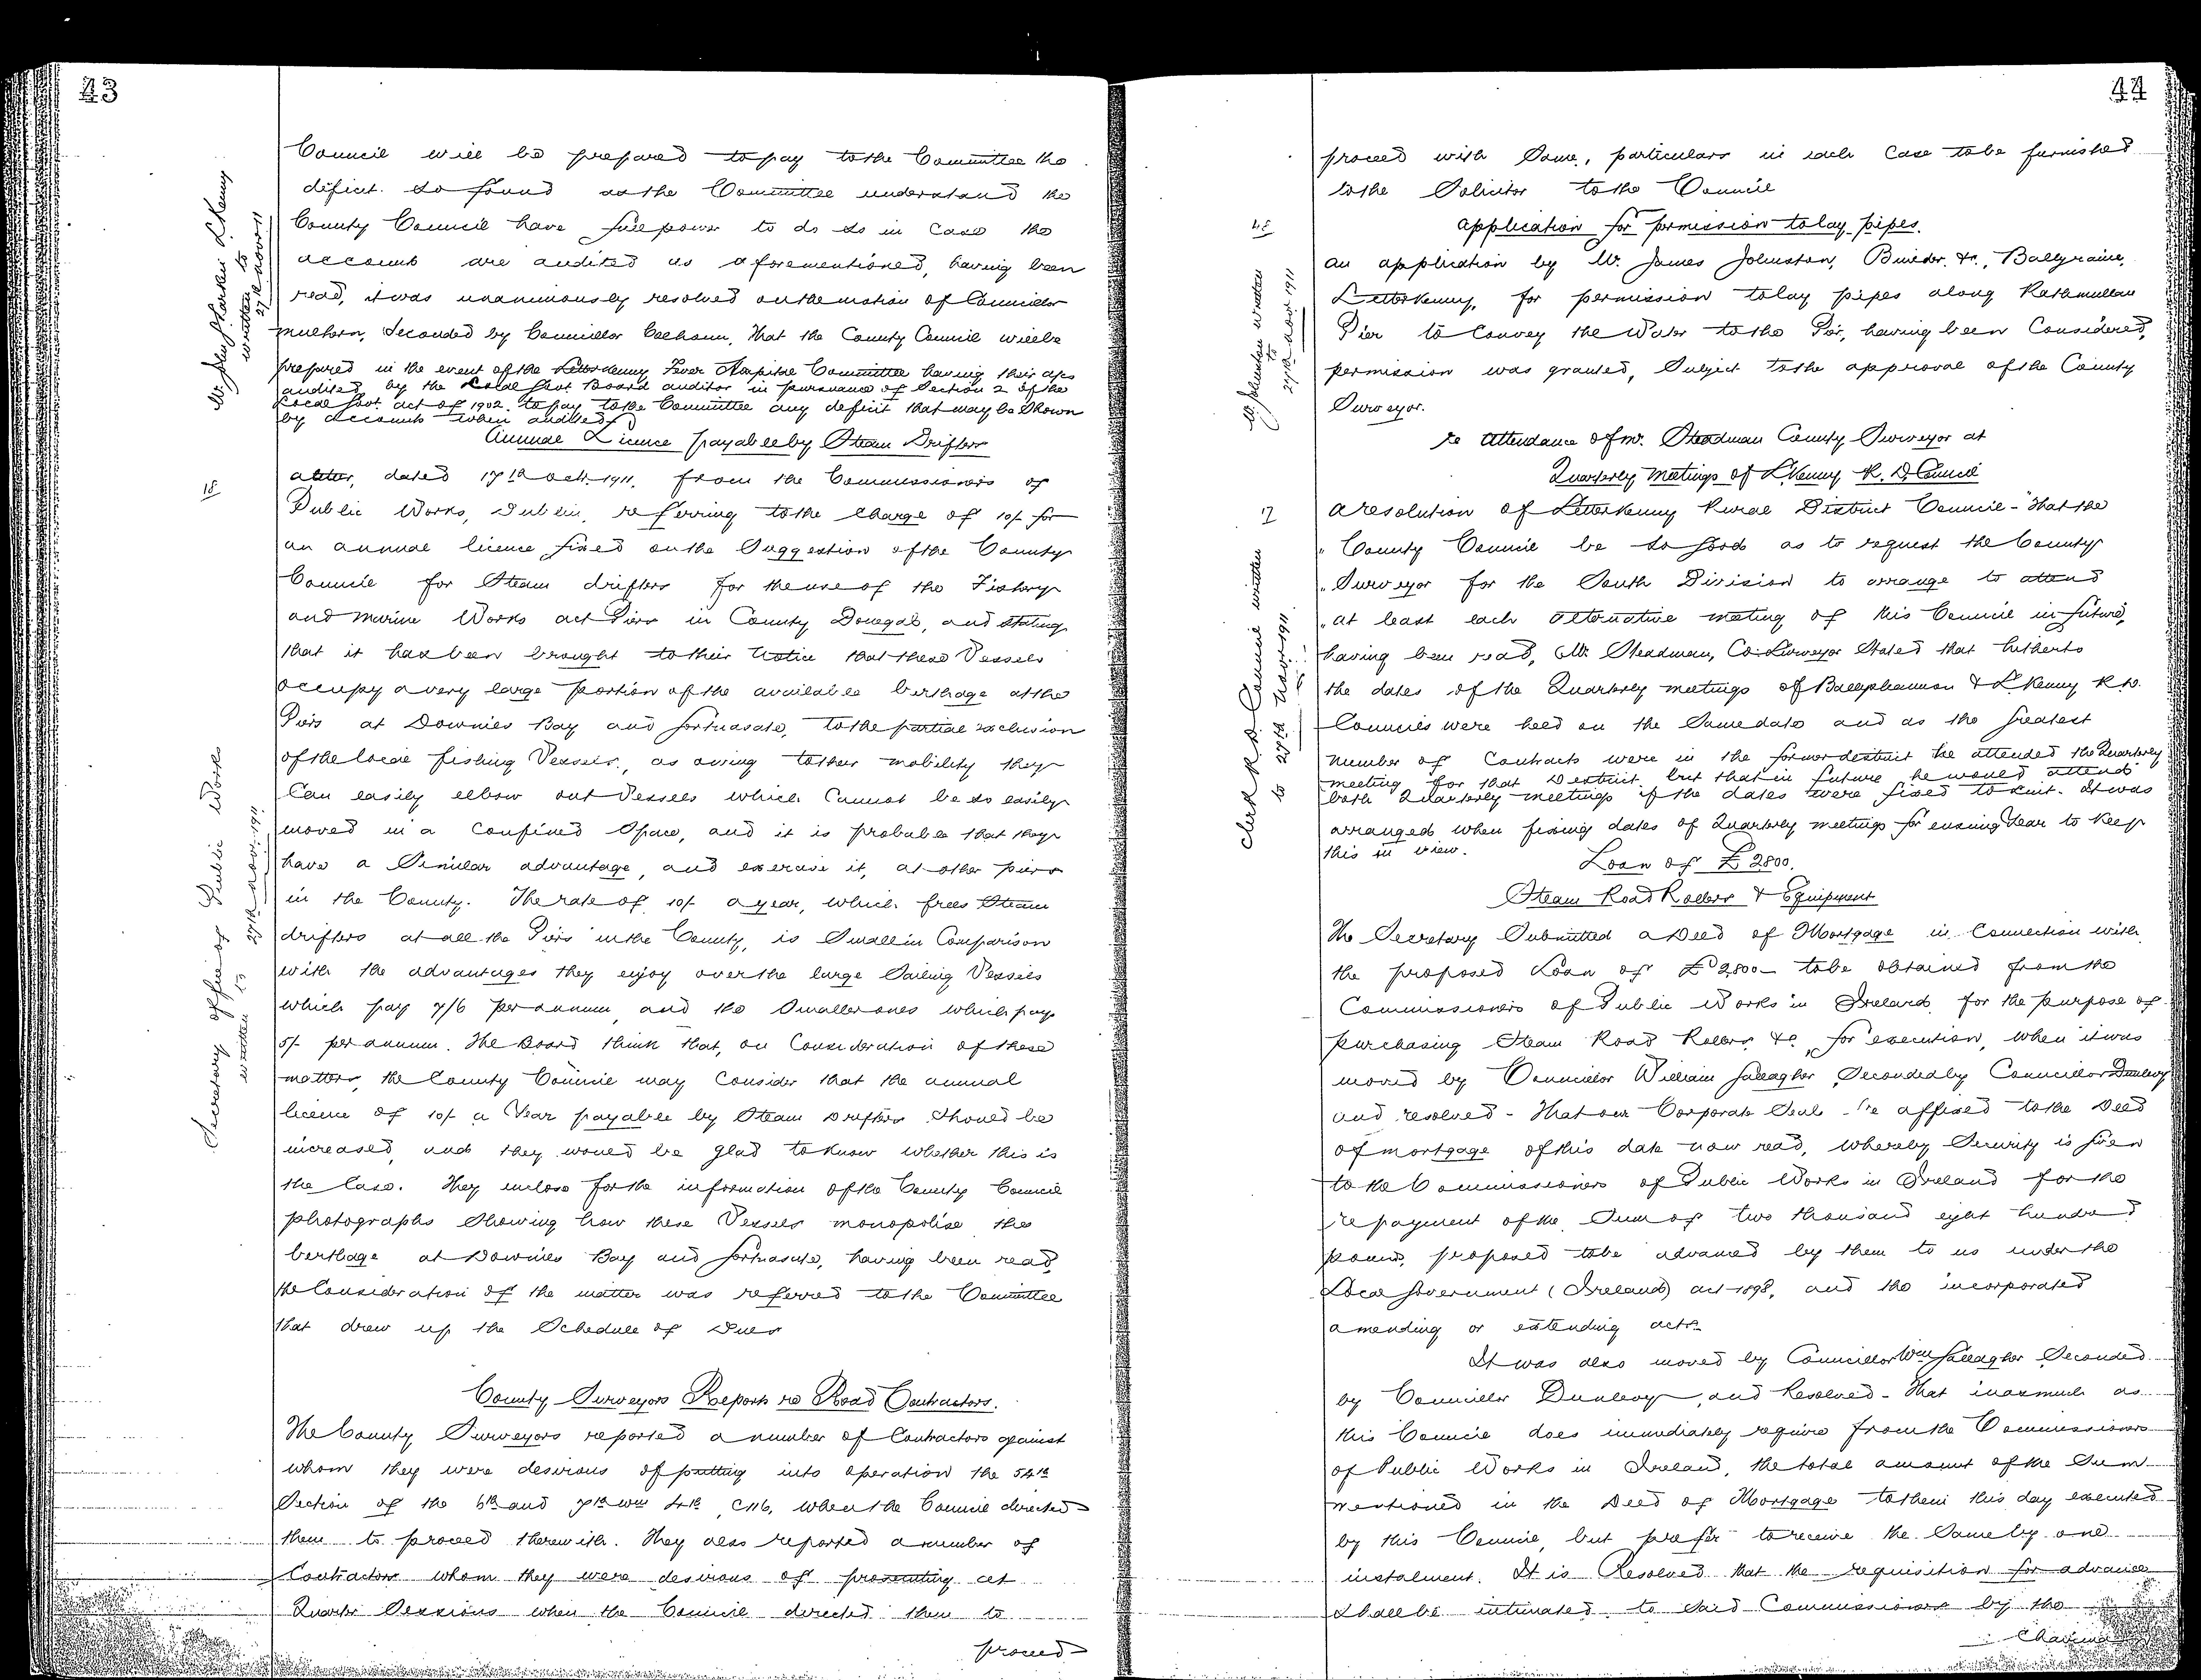 43
Council will be prepared to pay to the Committee the
deficit so found as the Committee understand the
County Council have full power to do so in case the
accounts are audited as aforementioned, having been
read, it was unanimously resolved on the motion of Councillor
Mulhern, Seconded by Councillor Colhoun, That the County Council will be
prepared in the event of the Letterkenny Fever Hospital Committee having their a/cs
audited by the Local Govt Board auditor in pursuance of Section 2 of the
Local Govt. act of 1902. to pay to the Committee any deficit that may be Shown
by accounts when audited
Mr. Larkin L'Kenny
written to
27th Novr 11
Annual Licence payable by Steam Drifters
18
A letter, dated 17th Octr. 1911, from the Commissioners of
Public Works, Dublin, referring to the Charge of 10/- for
an annual licence fixed on the Suggestion of the County
Council for Steam drifters for the use of the Fishery
and Marine Works act Piers in County Donegal, and stating
that it has been brought to their Notice that these Vessels
occupy a very large portion of the available berthage at the
Piers at Downies Bay and Portnasale, to the partial exclusion
of the local fishing Vessels, as owing to their mobility they
Can easily elbow out Vessels which Cannot be so easily
moved in a confined Space, and it is probable that they
have a Similar advantage, and exercise it, at other piers
in the County. The rate of 10/- a year, which frees Steam
drifters at all the Piers in the County, is Small in Comparison
with the advantages they enjoy over the large Sailing Vessels
which pay 7/6 per annum, and the Smaller ones which pay
5/- per annum. The Board think that, on Consideration of these
matters, the County Council may Consider that the annual
licence of 10/- a Year payable by Steam Drifters Should be
increased, and they would be glad to know whether this is
the Case. They enclose for the information of the County Council
photographs Showing how these Vessels monopolise the
berthage at Downies Bay and Portnasale, having been read,
the Consideration of the matter was referred to the Committee
that drew up the Schedule of Dues
Secretary office of Public Works
written to
27th Novr. 1911
County Surveyors Reports re Road Contractors.
The County Surveyors reported a number of Contractors against
whom they were desirous of putting into operation the 54th
Section of the 6th and 7th Wm 4th C116, when the Council directed
them to proceed therewith. They also reported a number of
Contractors whom they were desirous of prosecuting at
Quarter Sessions when the Council directed them to
proceed
44
proceed with Same, particulars in each Case to be furnished
to the Solicitor to the Council
Application for permission to lay pipes.
An application by Mr. James Johnston, Builder &c., Ballyraine,
Letterkenny, for permission to lay pipes along Rathmullan
Pier to Convey the Water to the Pier, having been Considered,
permission was granted, Subject to the approval of the County
Surveyor.
Mr Johnston written
to
27th Novr 1911
re Attendance of Mr. Steadman County Surveyor at
Quarterly Meetings of L'Kenny R. D. Council
17
A resolution of Letterkenny Rural District Council - "That the
" County Council be so good as to request the County
" Surveyor for the South Division to arrange to attend
" at least each alternative meeting of this Council in future",
having been read, Mr. Steadman, Co. Surveyor Stated that hitherto
the dates of the Quarterly meetings of Ballyshannon & L'Kenny R.D.
Councils were held on the Same date and as the greatest
number of Contracts were in the former district he attended the Quarterly
meeting for that District but that in future he would attend
both Quarterly meetings if the dates were fixed to suit. It was
arranged when fixing dates of Quarterly meetings for ensuing Year to keep
this in view.
Clerk R D Council written
to 27th Novr 1911
Loan of £2800.
Steam Road Rollers & Equipment
The Secretary Submitted a Deed of Mortgage in Connection with
the proposed Loan of £2,800 - to be obtained from the
Commissioners of Public Works in Ireland, for the purpose of
purchasing Steam Road Rollers &c., for execution, when it was
moved by Councillor William Gallagher, Seconded by Councillor Dunlevy
and resolved - That our Corporate Seal be affixed to the Deed
of Mortgage of this date now read, whereby Security is given
to the Commissioners of Public Works in Ireland for the
repayment of the Sum of two thousand eight hundred
pounds, proposed to be advanced by them to us under the
Local Government (Ireland) act 1898, and the incorporated
amending or extending acts.
It was also moved by Councillor Wm Gallagher Seconded
by Councillor Dunlevy, and Resolved - That inasmuch as
this Council does immediately require from the Commissioners
of Public Works in Ireland, the total amount of the Sum
mentioned in the Deed of Mortgage to them this day executed
by this Council, but prefer to receive the Same by one
instalment. It is Resolved that the requisition for advance
Shall be intimated to Said Commissioners by the
Chairman